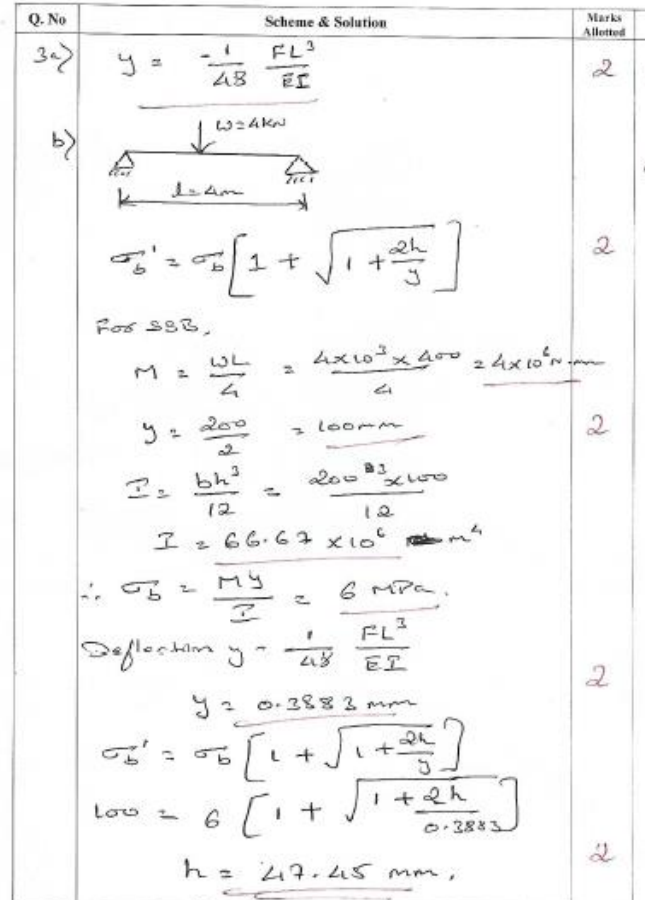 Q. No Scheme & Solution Marks Allotted
3a) y = -1/48 FL³/EI 2
b) W=4KN
l=4m
σb' = σb [1 + √(1 + 2h/y)] 2
For SSB,
M = WL/4 = 4x10³ x 400/4 = 4x10⁶ N-mm
y = 200/2 = 100mm 2
I = bh³/12 = 200³x100/12
I = 66.67 x10⁶ m⁴
∴ σb = My/I = 6 MPa.
Deflection y = 1/48 FL³/EI
2
y = 0.3883 mm
σb' = σb [1 + √(1 + 2h/y)]
100 = 6 [1 + √(1 + 2h/0.3883)]
h = 47.45 mm. 2